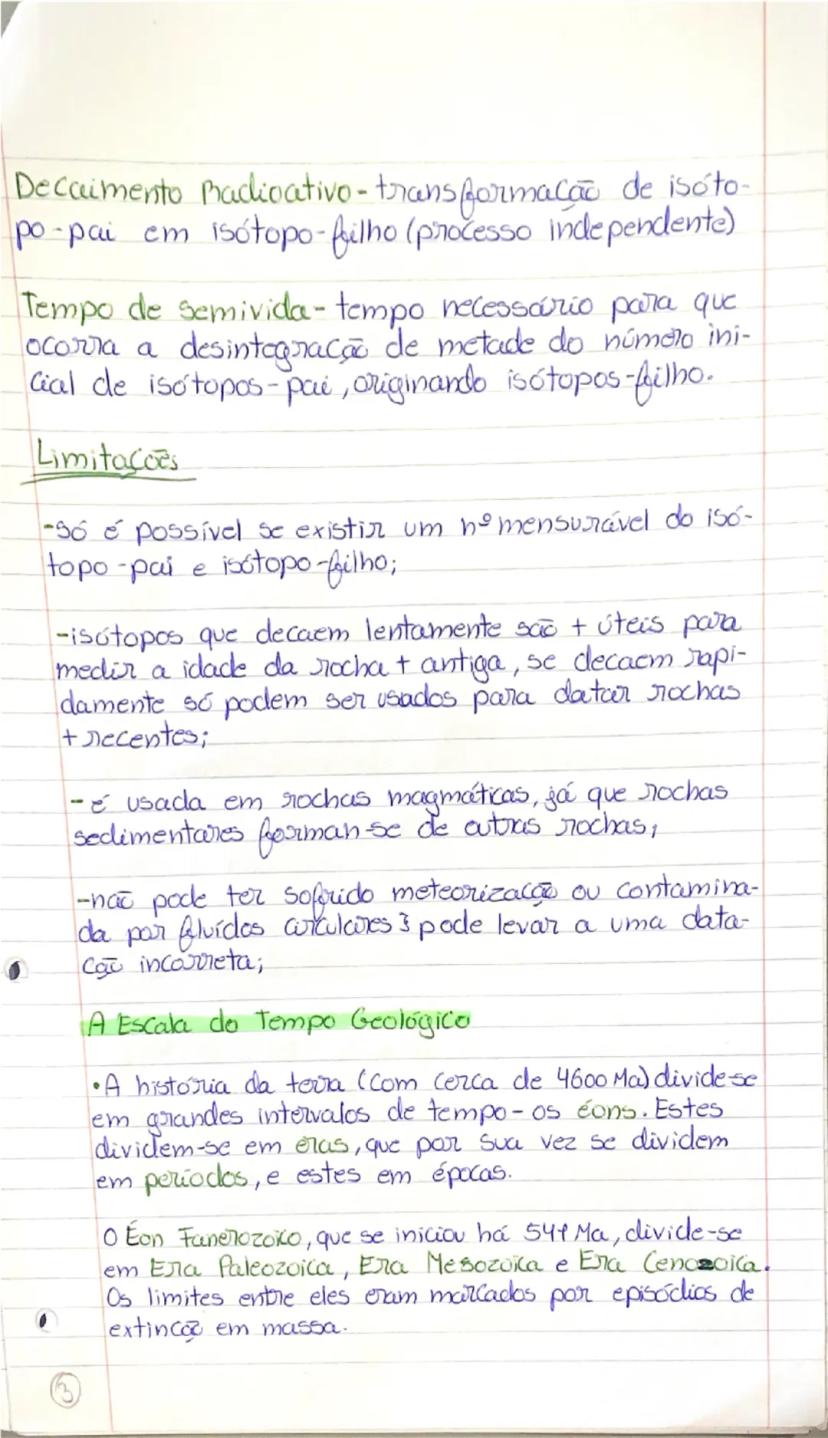 Decaimento Radioativo - transformação de isóto-
po-pai em isótopo-filho (processo independente)
Tempo de semivida - tempo necessário para que
ocorra a desintegração de metade do número ini-
cial de isótopos-pai, originando isótopos-filho.
Limitações
-só é possível se existir um nº mensurável do isó-
topo-pai e isótopo-filho;
-isótopos que decaem lentamente são + úteis para
medir a idade da rocha + antiga, se decaem rapi-
damente só podem ser usados para datar rochas
+ recentes;
- é usada em rochas magmáticas, já que rochas
sedimentares formam-se de outras rochas;
-não pode ter sofrido meteorização ou contamina-
da por fluídos circulares } pode levar a uma data-
ção incorreta;
A Escala do Tempo Geológico
•A história da terra (com cerca de 4600 Ma) divide-se
em grandes intervalos de tempo - os éons. Estes
dividem-se em eras, que por sua vez se dividem
em períodos, e estes em épocas.
O Éon Fanerozoico, que se iniciou há 541 Ma, divide-se
em Era Paleozoica, Era Mesozoica e Era Cenozoica.
Os limites entre eles eram marcados por episódios de
extinção em massa.
3